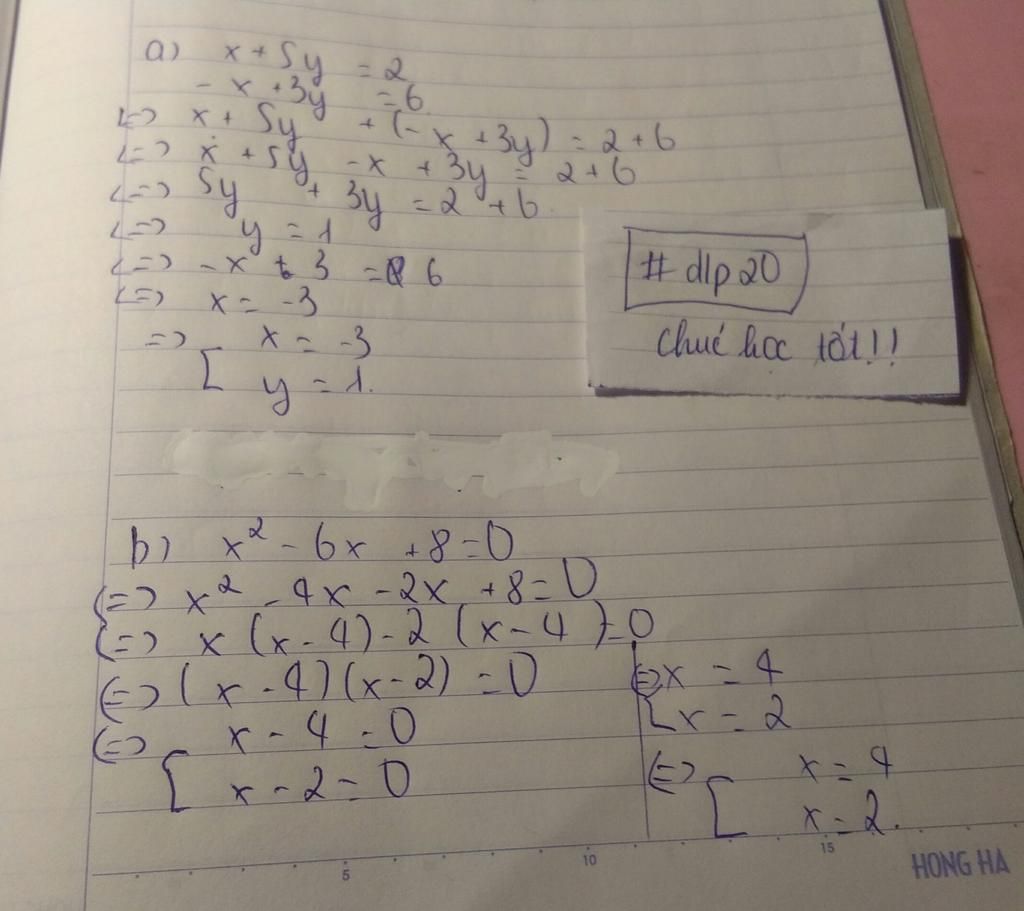 a) x + 5y = 2
- x + 3y = 6
<=> x + 5y + (- x + 3y) = 2 + 6
<=> x + 5y - x + 3y = 2 + 6
<=> 5y + 3y = 2 + 6
<=> y = 1
<=> - x + 3 = 6
<=> x = -3
=> [ x = -3
y = 1.
# dlp 20
chúc học tốt!!
b) x² - 6x + 8 = 0
<=> x² - 4x - 2x + 8 = 0
<=> x (x - 4) - 2 (x - 4) = 0
<=> (x - 4)(x - 2) = 0
<=> [ x - 4 = 0
x - 2 = 0
<=> [ x = 4
x = 2
<=> [ x = 4
x = 2.
5 10 15
HONG HA